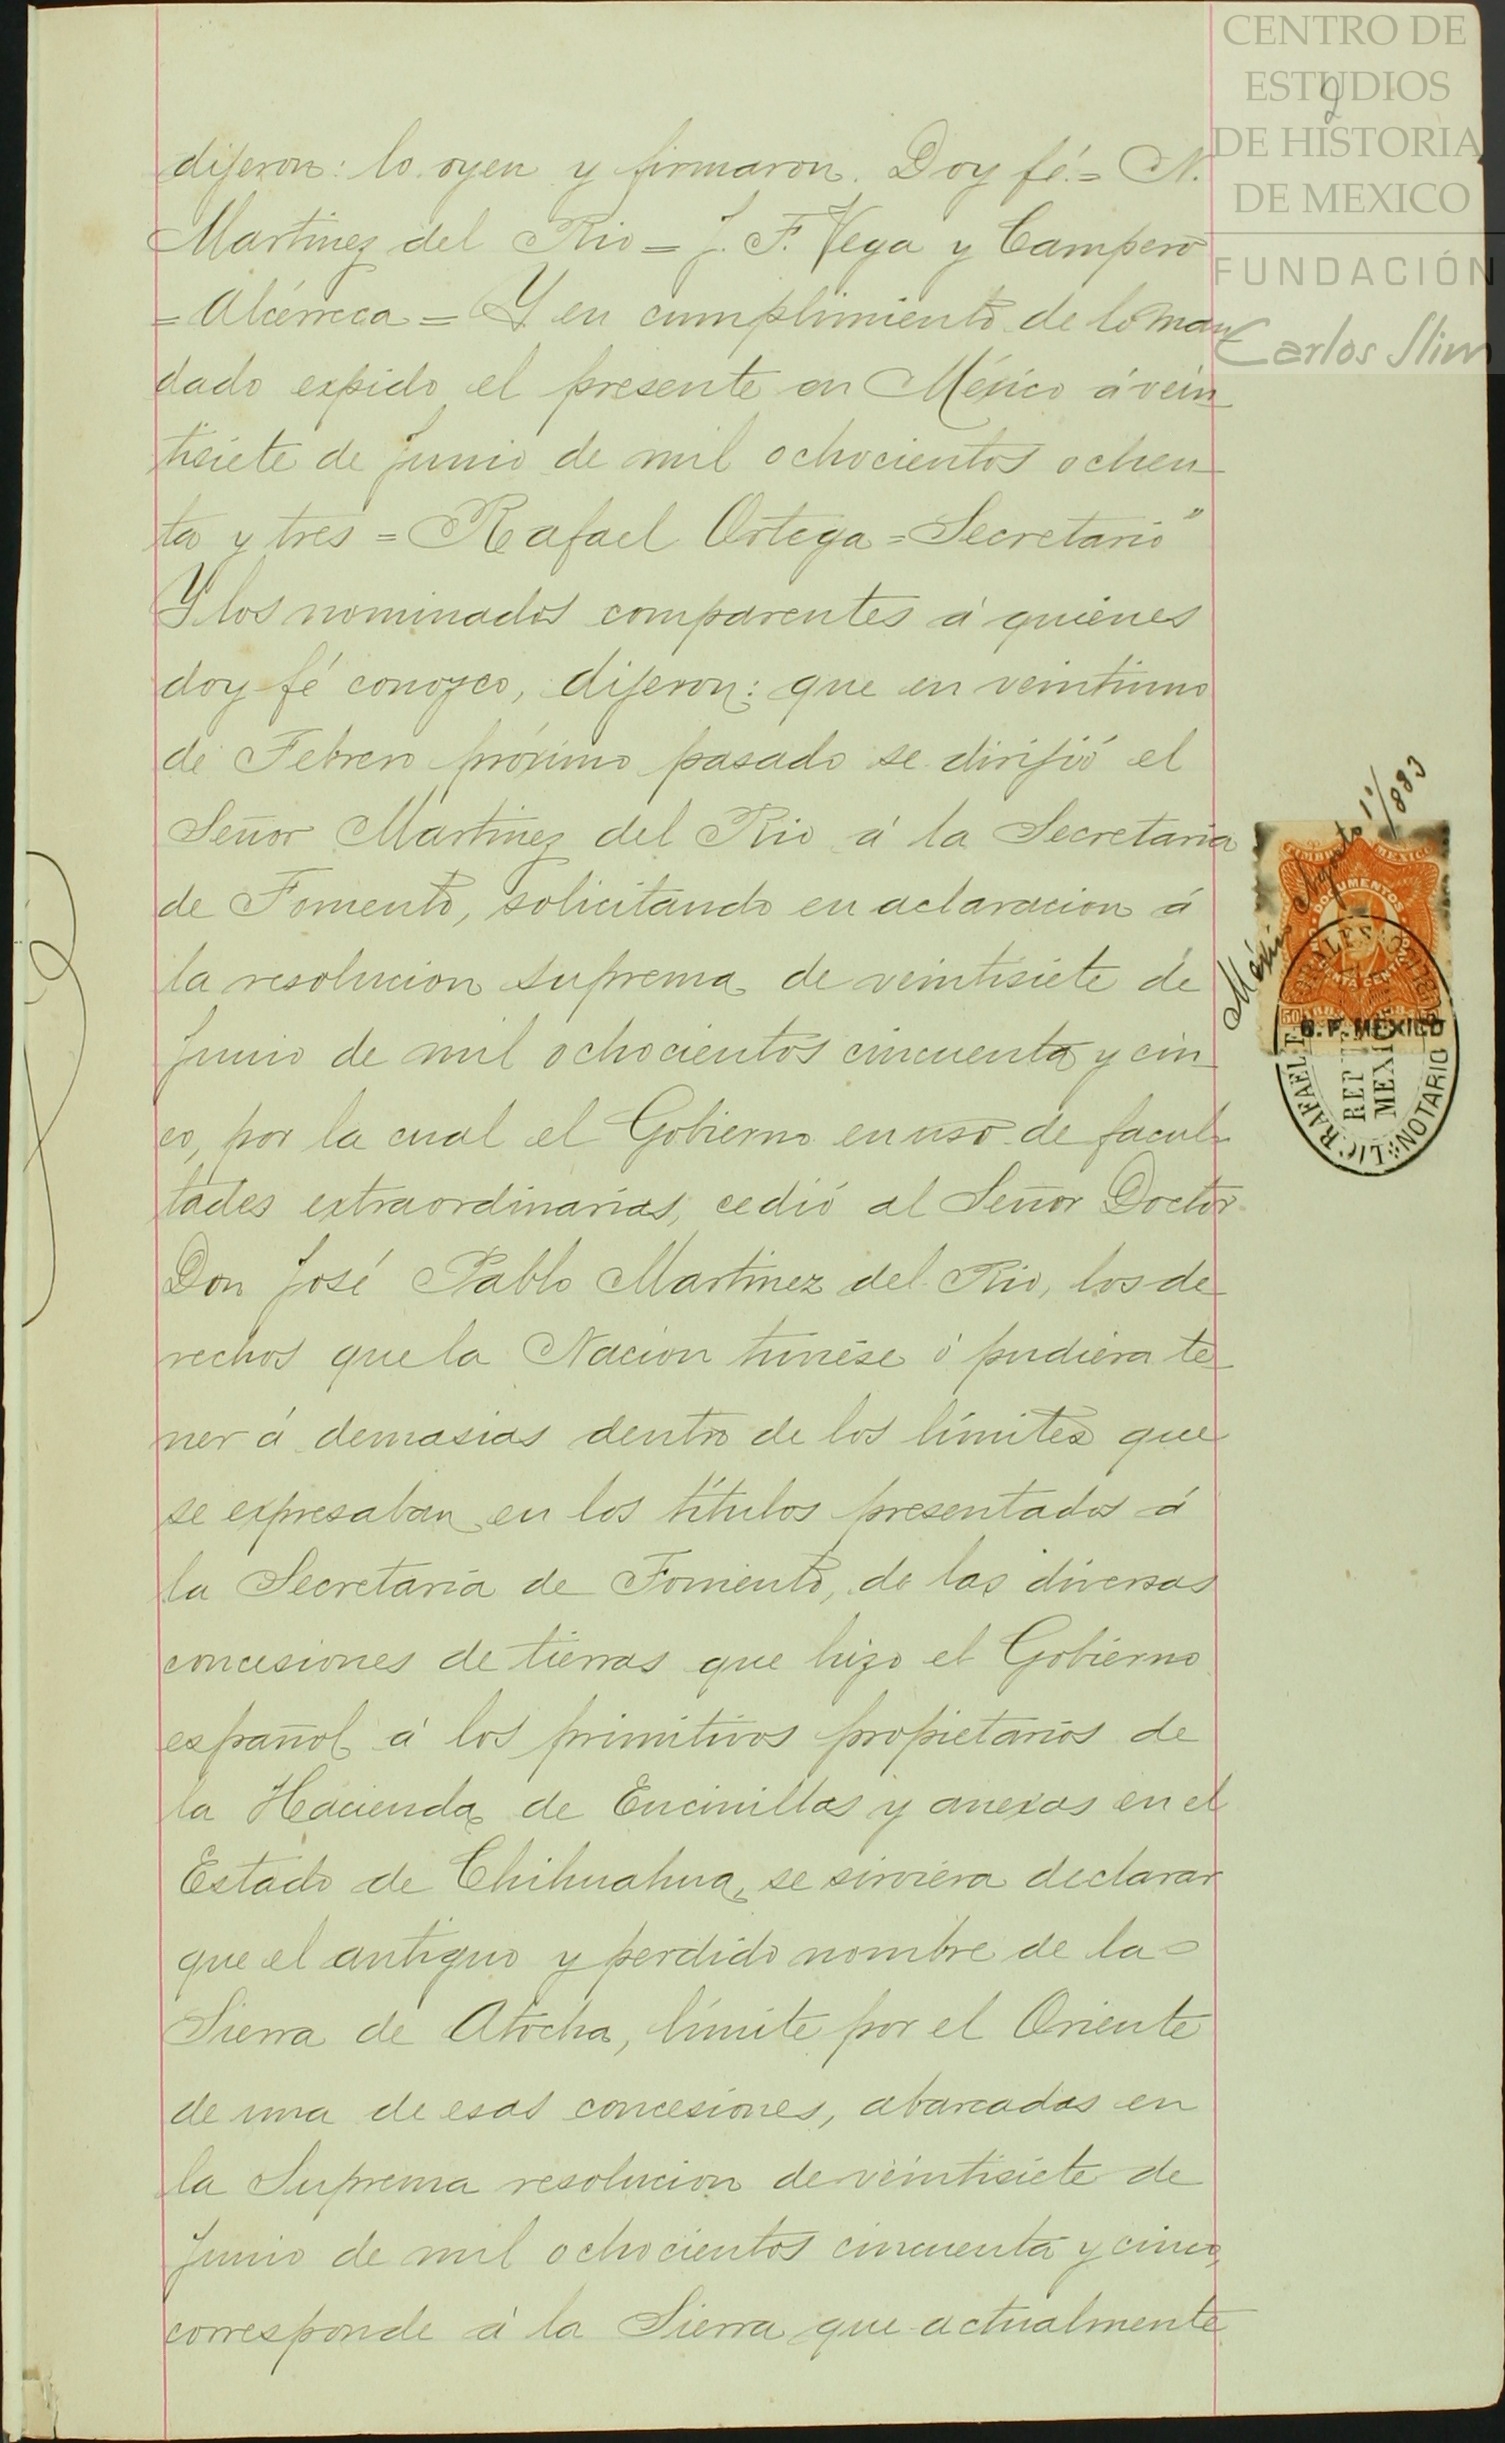 CENTRO DE
ESTUDIOS
DE HISTORIA
DE MEXICO
FUNDACIÓN
Carlos Slim
9
dijeron: lo oyen y firmaron. Doy fé.= N.
Martinez del Rio = J. F. Vega y Campero
= Alcérreca = Y en cumplimiento de lo man
dado expido el presente en México á vein
tisiete de junio de mil ochocientos ochen
ta y tres = Rafael Ortega = Secretario"
Y los nominados comparentes á quienes
doy fé conozco, dijeron: que en veintiuno
de Febrero próximo pasado se dirijió el
Señor Martinez del Rio á la Secretaria
de Fomento, solicitando en aclaracion á
la resolucion suprema de veintisiete de
Junio de mil ochocientos cincuenta y cin
co, por la cual el Gobierno en uso de facul
tades extraordinarias, cedió al Señor Doctor
Don José Pablo Martinez del Rio, los de
rechos que la Nacion tuviese ó pudiera te
ner á demasias dentro de los límites que
se expresaban en los títulos presentados á
la Secretaría de Fomento, de las diversas
concesiones de tierras que hizo el Gobierno
español á los primitivos propietarios de
la Hacienda de Encinillas y anexas en el
Estado de Chihuahua, se sirviera declarar
que el antiguo y perdido nombre de la
Sierra de Atocha, límite por el Oriente
de una de esas concesiones, abarcadas en
la Suprema resolucion de veintisiete de
Junio de mil ochocientos cincuenta y cinco,
corresponde á la Sierra que actualmente
México Agosto 1º/883
MEXICO
DOCUMENTOS
50
D. F. MEXICO
LIC. RAFAEL F. MORALES
NOTARIO
REP
MEXI